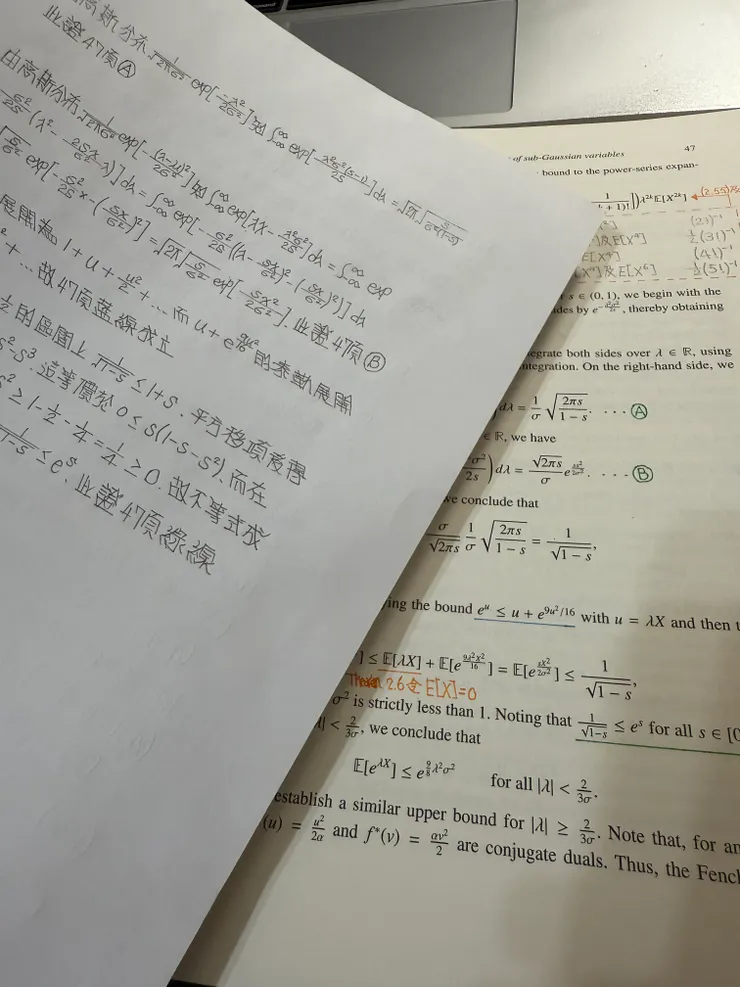 高斯分布 \frac{1}{\sqrt{2πσ²}} exp[-\frac{x²}{2σ²}] 知 ∫_{-∞}^{∞} exp[\frac{λ²σ²(s-1)}{2s}]dλ = √2π √\frac{s}{σ²(1-s)}
此證47頁Ⓐ
由高斯分布 \frac{1}{\sqrt{2πσ²}} exp[-\frac{(x-μ)²}{2σ²}] 知 ∫_{-∞}^{∞} exp[λx-\frac{λ²σ²}{2s}]dλ = ∫_{-∞}^{∞} exp
\frac{σ²}{2s}(λ²-\frac{2sx}{σ²}λ)]dλ = ∫_{-∞}^{∞} exp[-\frac{σ²}{2s}((λ-\frac{sx}{σ²})²-(\frac{sx}{σ²})²)]dλ
\sqrt{\frac{s}{σ²}} exp[-\frac{σ²}{2s}x-(\frac{sx}{σ²})²] = √2π\sqrt{\frac{s}{σ²}} exp[\frac{sx²}{2σ²}]. 此證47頁Ⓑ
展開為 1+u+\frac{u²}{2}+… 而 u+e^{\frac{9u²}{16}} 的泰勒展開
+… 故47頁藍線成立
½ 的區間上 \frac{1}{\sqrt{1-s}} ≤ 1+s. 平方移項後得
s²-s³. 這等價於 0≤s(1-s-s²). 而在
s² ≥ 1-½-¼=¼≥0. 故不等式成
\frac{1}{\sqrt{1-s}} ≤ e^s. 此證47頁綠線
of sub-Gaussian variables 47
bound to the power-series expan-
+ 1)!]) λ^{2k}E[X^{2k}] ←(2.55)
(2!)⁻¹
]及E[X⁴] ½(3!)⁻¹
E[X⁴] (4!)⁻¹
X⁴]及E[X⁶] ½(5!)⁻¹
s ∈ (0, 1), we begin with the
des by e^{-\frac{λ²σ²}{2s}}, thereby obtaining
egrate both sides over λ ∈ ℝ, using
ntegration. On the right-hand side, we
dλ = \frac{1}{σ} \sqrt{\frac{2πs}{1-s}}. ···Ⓐ
∈ ℝ, we have
\frac{σ²}{2s}) dλ = \frac{\sqrt{2πs}}{σ} e^{\frac{sx²}{2σ²}}. ····Ⓑ
we conclude that
\frac{σ}{\sqrt{2πs}} \frac{1}{σ} \sqrt{\frac{2πs}{1-s}} = \frac{1}{\sqrt{1-s}},
ying the bound e^u ≤ u + e^{9u²/16} with u = λX and then t
] ≤ E[λX] + E[e^{\frac{9λ²X²}{16}}] = E[e^{\frac{sX²}{2σ²}}] ≤ \frac{1}{\sqrt{1-s}},
Thm 2.6令E[X]=0
σ² is strictly less than 1. Noting that \frac{1}{\sqrt{1-s}} ≤ e^s for all s ∈ [0
λ| < \frac{2}{3σ}, we conclude that
E[e^{λX}] ≤ e^{\frac{9}{8}λ²σ²} for all |λ| < \frac{2}{3σ}.
establish a similar upper bound for |λ| ≥ \frac{2}{3σ}. Note that, for an
(u) = \frac{u²}{2α} and f*(v) = \frac{αv²}{2} are conjugate duals. Thus, the Fench